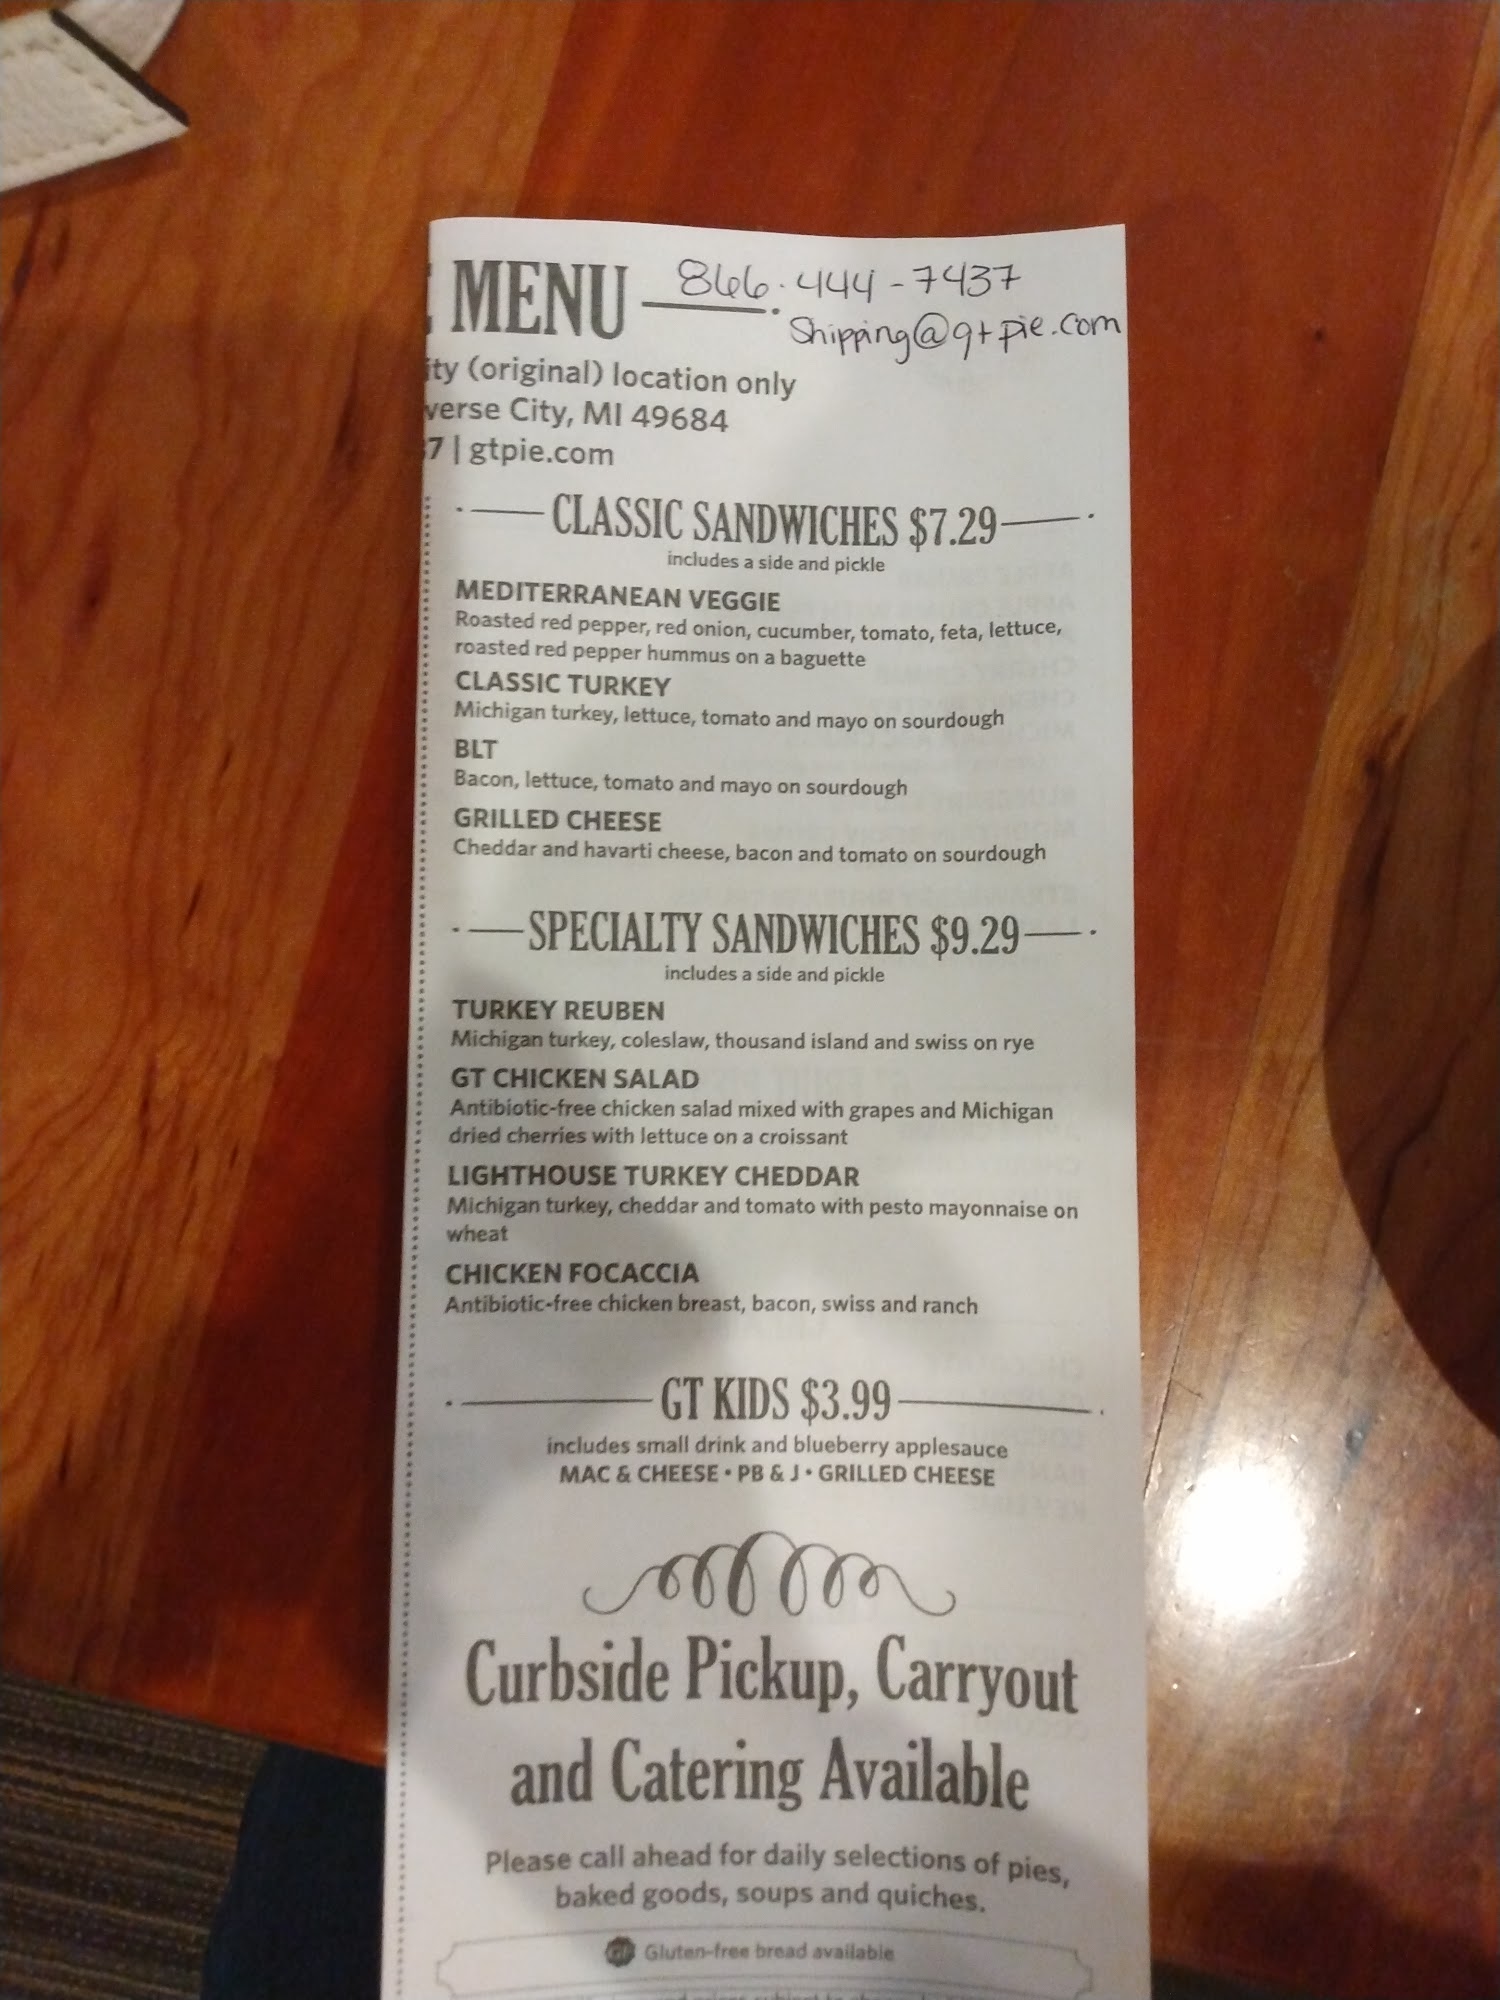 MENU 866·444-7437
Shipping@gtpie.com
(original) location only
City, MI 49684
7 | gtpie.com
CLASSIC SANDWICHES $7.29
includes a side and pickle
MEDITERRANEAN VEGGIE
Roasted red pepper, red onion, cucumber, tomato, feta, lettuce,
roasted red pepper hummus on a baguette
CLASSIC TURKEY
Michigan turkey, lettuce, tomato and mayo on sourdough
BLT
Bacon, lettuce, tomato and mayo on sourdough
GRILLED CHEESE
Cheddar and havarti cheese, bacon and tomato on sourdough
SPECIALTY SANDWICHES $9.29
includes a side and pickle
TURKEY REUBEN
Michigan turkey, coleslaw, thousand island and swiss on rye
GT CHICKEN SALAD
Antibiotic-free chicken salad mixed with grapes and Michigan
dried cherries with lettuce on a croissant
LIGHTHOUSE TURKEY CHEDDAR
Michigan turkey, cheddar and tomato with pesto mayonnaise on
wheat
CHICKEN FOCACCIA
Antibiotic-free chicken breast, bacon, swiss and ranch
GT KIDS $3.99
includes small drink and blueberry applesauce
MAC & CHEESE • PB & J • GRILLED CHEESE
Curbside Pickup, Carryout
and Catering Available
Please call ahead for daily selections of pies,
baked goods, soups and quiches.
GF Gluten-free bread available